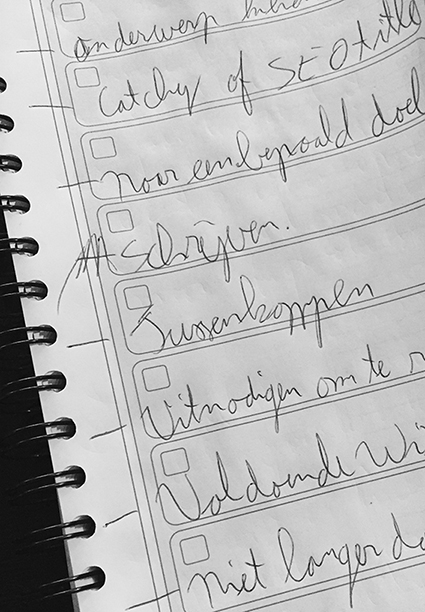 onderwerp
Catchy of SEO titel
naar een bepaald doel
schrijven.
Tussenkoppen
Uitnodigen om te
Voldoende Wi
niet langer da